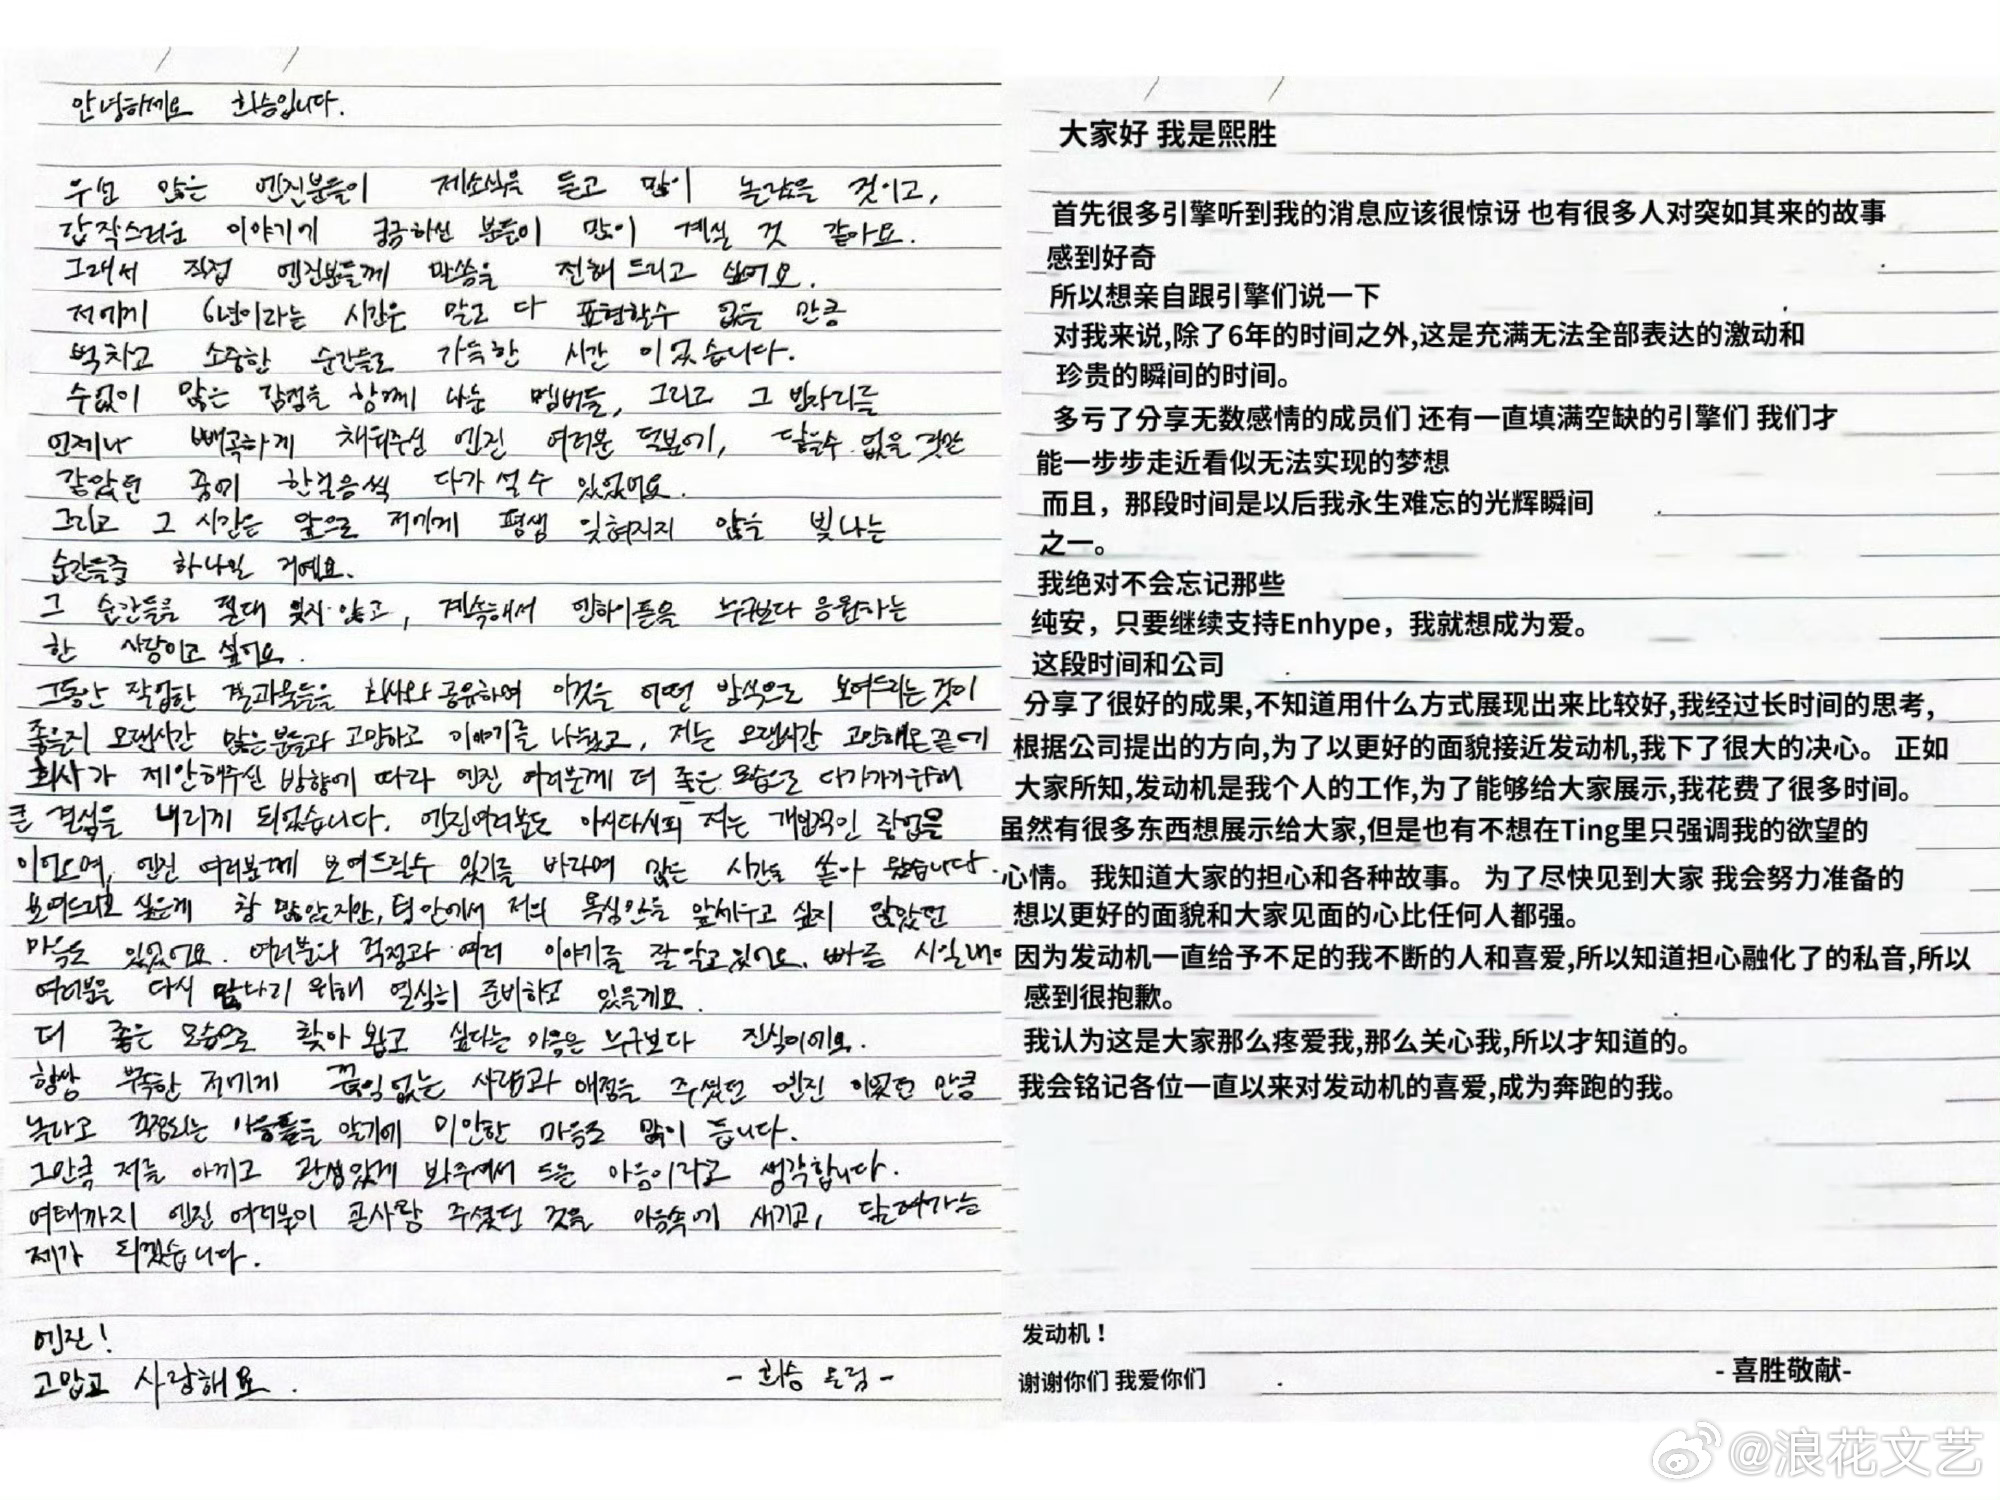 안녕하세요 희승입니다.
우선 많은 엔진분들이 제소식을 듣고 많이 놀랐을 것이고,
갑작스러운 이야기에 궁금하신 분들이 많이 계실 것 같아요.
그래서 직접 엔진분들께 말씀을 전해 드리고 싶어요.
저에게 6년이라는 시간은 말로 다 표현할수 없을 만큼
벅차고 소중한 순간들로 가득한 시간 이었습니다.
수없이 많은 감정을 함께 나눈 멤버들, 그리고 그 빈자리를
언제나 빼곡하게 채워주신 엔진 여러분 덕분에, 닿을수 없을 것만
같았던 꿈에 한걸음씩 다가 설 수 있었어요.
그리고 그 시간은 앞으로 저에게 평생 잊혀지지 않을 빛나는
순간들중 하나일 거예요.
그 순간들을 절대 잊지 않고, 계속해서 엔하이픈을 누구보다 응원하는
한 사람이고 싶어요.
그동안 작업한 결과물들을 회사와 공유하며 이것을 어떤 방식으로 보여드리는 것이
좋을지 오랜시간 많은 분들과 고민하고 이야기를 나눴고, 저는 오랜시간 고민해온 끝에
회사가 제안해주신 방향에 따라 엔진 여러분께 더 좋은 모습으로 다가가기 위해
큰 결심을 내리게 되었습니다. 엔진여러분도 아시다시피 저는 개인적인 작업을
이어오며, 엔진 여러분께 보여드릴수 있기를 바라며 많은 시간을 쏟아 왔습니다.
보여드리고 싶은게 참 많았지만, 팀 안에서 저의 욕심만을 앞세우고 싶지 않았던
마음도 있었어요. 여러분의 걱정과 여러 이야기를 잘 알고 있어요. 빠른 시일내에
여러분을 다시 만나기 위해 열심히 준비하고 있을게요.
더 좋은 모습으로 찾아 뵙고 싶다는 마음은 누구보다 진심이에요.
항상 부족한 저에게 끊임없는 사랑과 애정을 주셨던 엔진 이었던 만큼
놀라고 걱정되는 마음들을 알기에 미안한 마음도 많이 듭니다.
그만큼 저를 아끼고 관심있게 봐주셔서 드는 마음이라고 생각합니다.
여태까지 엔진 여러분이 큰사랑 주셨던 것을 마음속에 새기고, 달려가는
제가 되겠습니다.
엔진!
고맙고 사랑해요.
- 희승 드림 -
大家好 我是熙胜
首先很多引擎听到我的消息应该很惊讶 也有很多人对突如其来的故事
感到好奇
所以想亲自跟引擎们说一下
对我来说,除了6年的时间之外,这是充满无法全部表达的激动和
珍贵的瞬间的时间。
多亏了分享无数感情的成员们 还有一直填满空缺的引擎们 我们才
能一步步走近看似无法实现的梦想
而且，那段时间是以后我永生难忘的光辉瞬间
之一。
我绝对不会忘记那些
纯安，只要继续支持Enhype，我就想成为爱。
这段时间和公司
分享了很好的成果,不知道用什么方式展现出来比较好,我经过长时间的思考,
根据公司提出的方向,为了以更好的面貌接近发动机,我下了很大的决心。 正如
大家所知,发动机是我个人的工作,为了能够给大家展示,我花费了很多时间。
虽然有很多东西想展示给大家,但是也有不想在Ting里只强调我的欲望的
心情。 我知道大家的担心和各种故事。 为了尽快见到大家 我会努力准备的
想以更好的面貌和大家见面的心比任何人都强。
因为发动机一直给予不足的我不断的人和喜爱,所以知道担心融化了的私音,所以
感到很抱歉。
我认为这是大家那么疼爱我,那么关心我,所以才知道的。
我会铭记各位一直以来对发动机的喜爱,成为奔跑的我。
发动机！
谢谢你们 我爱你们
- 喜胜敬献-
@浪花文艺